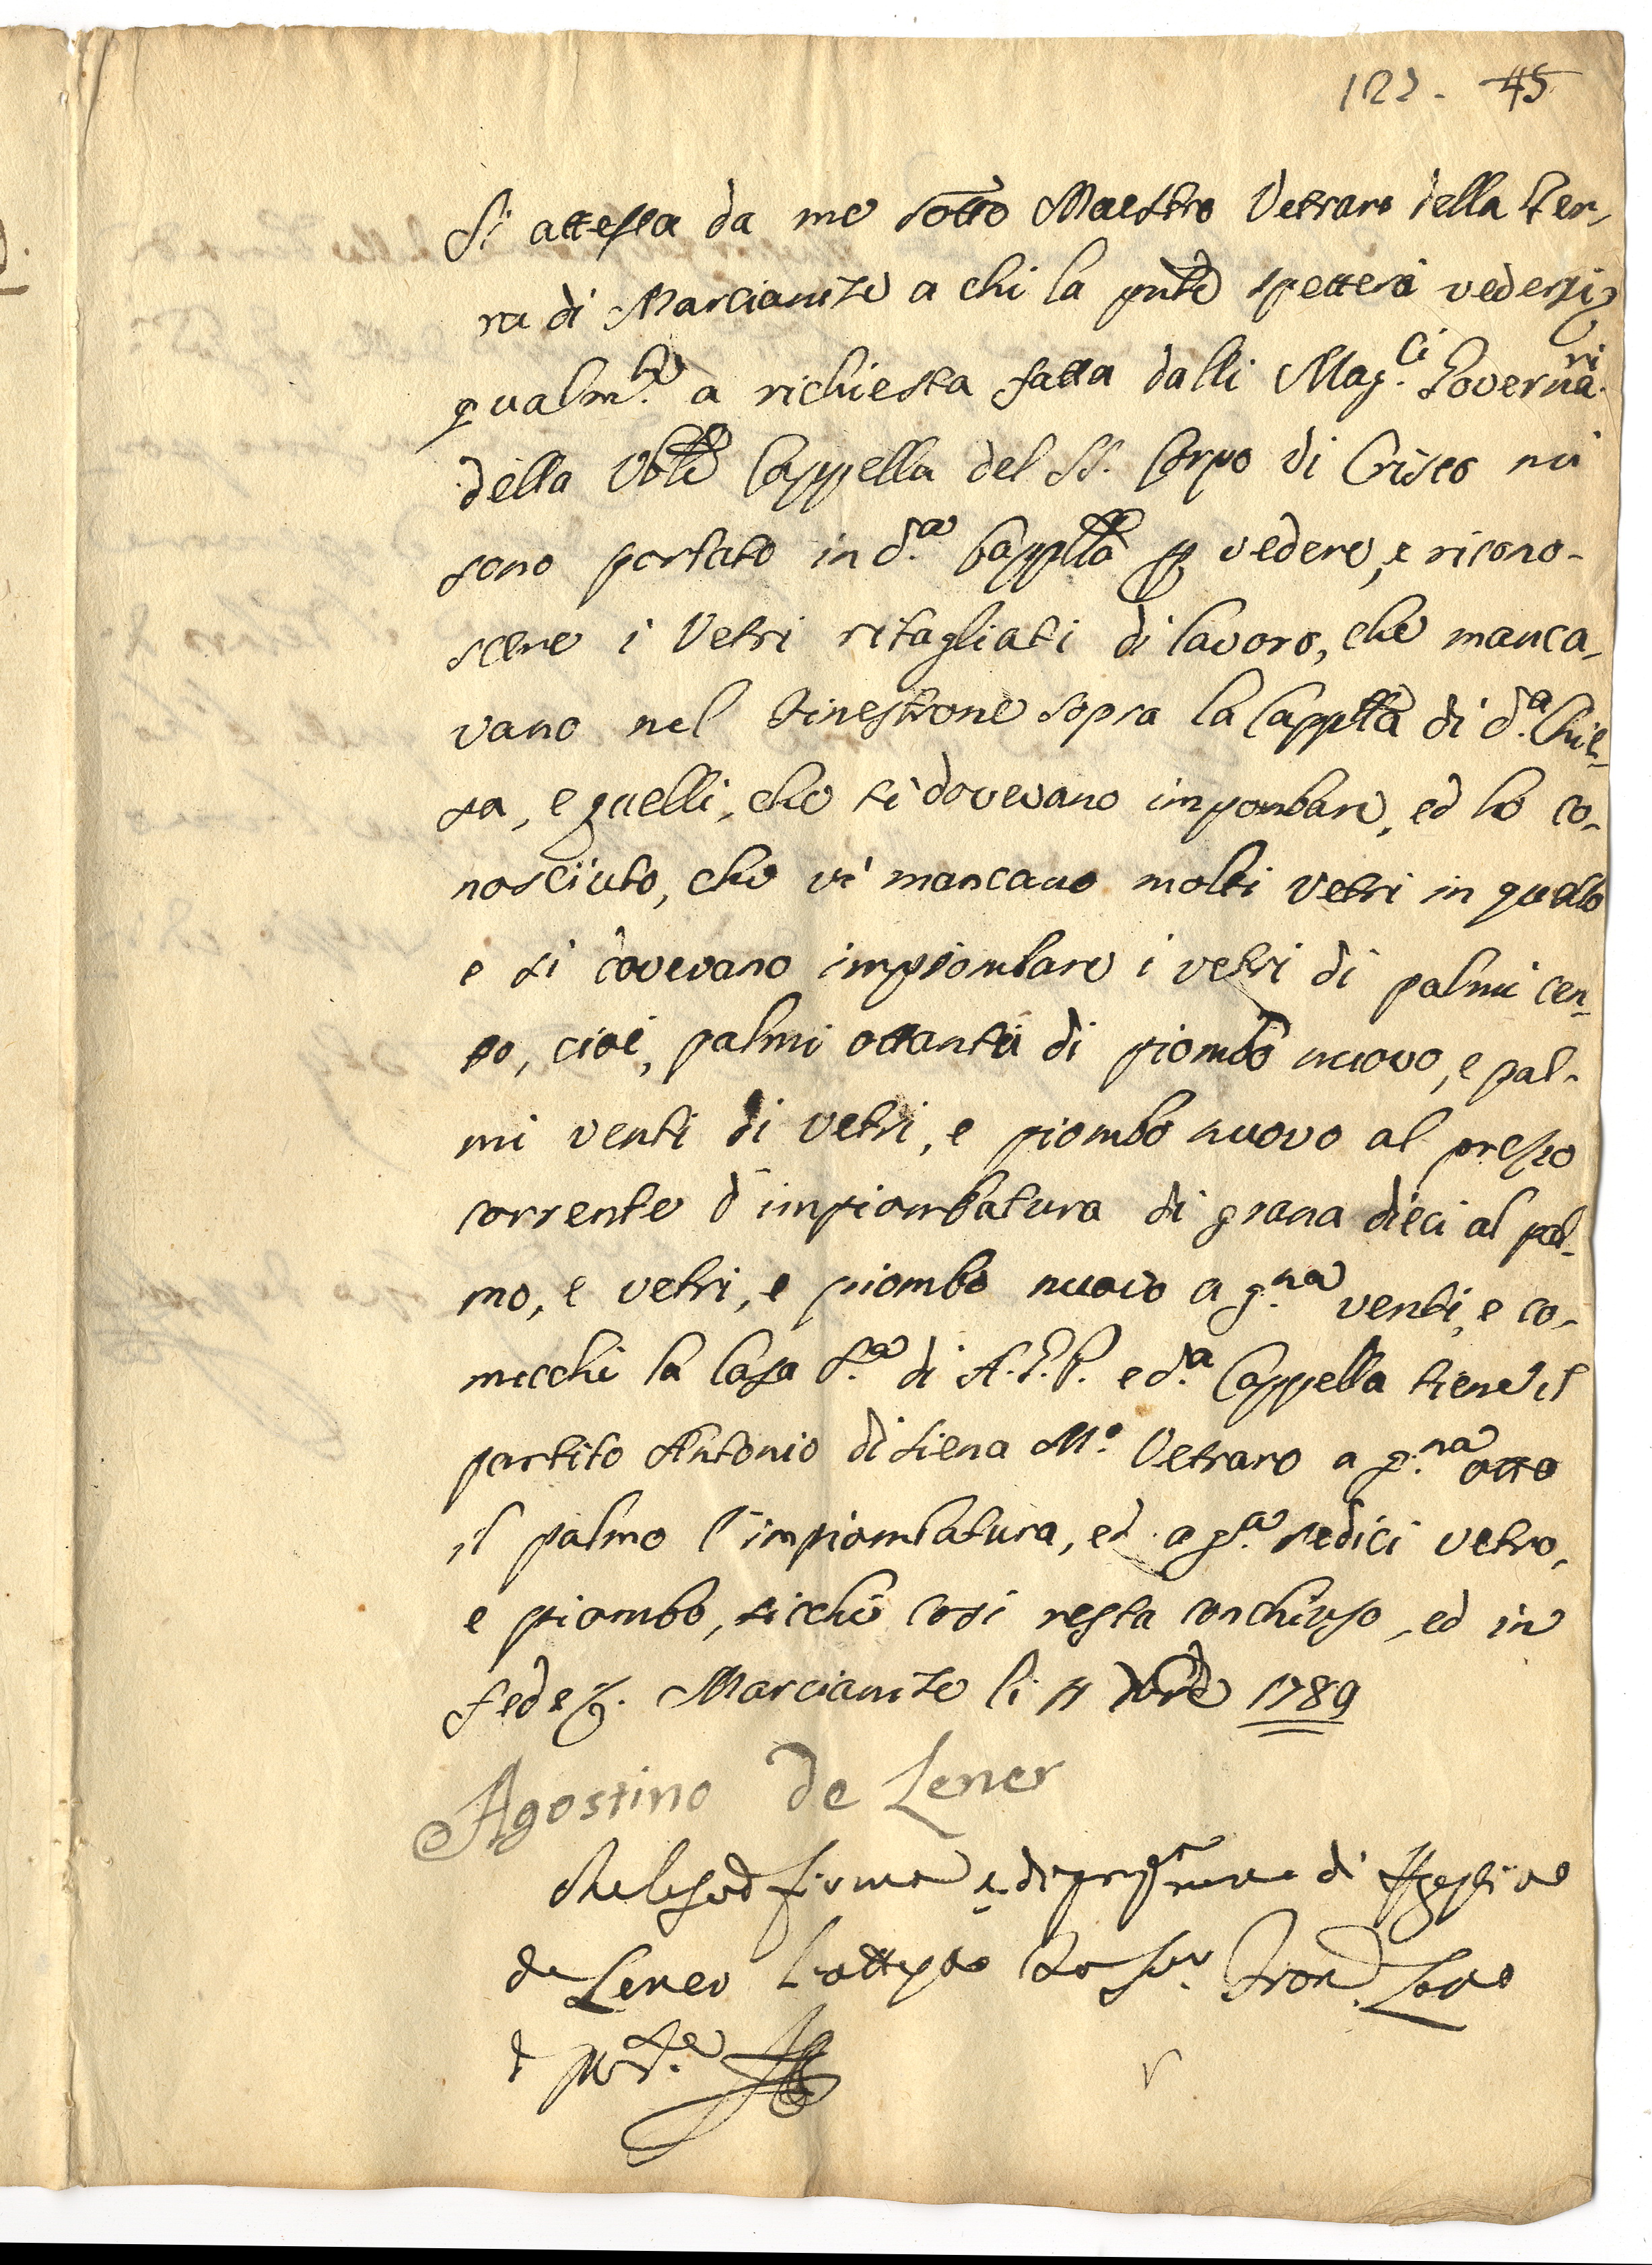 122. 45
Si attesta da me sotto Maestro Vetraro della Ter,
ra di Marcianise a chi la pnte spetterà vedersi,
qualm.te a richiesta fatta dalli Mag.ci Governa.ri
della Vble Cappella del SS. Corpo di Cristo mi
sono portato in d.a Capplla p vedere, e ricono-
scere i Vetri ritagliati di lavoro, che manca,
vano nel Finestrone sopra la Capplla di d.a Chie,
sa, e quelli, che si dovevano impombare, ed ho co,
nosciuto, che vi mancano molti vetri in quello
e si dovevano impiombare i vetri di palmi cen,
to, cioè, palmi ottanta di piombo nuovo, e pal-
mi venti di vetri, e piombo nuovo al prezzo
corrente d'impiombatura di grana dieci al pal,
mo, e vetri, e piombo nuovo a g.na venti, e co,
mecchè la Casa S.a di A.G.P. e d.a Cappella tiene il
partito Antonio di Siena M.o Vetraro a g.na otto
il palmo l'impiombatura, ed a g.a sedici vetro,
e piombo, sicchè così resta conchiuso, ed in
fede &. Marcianise li 11 Xbre 1789
Agostino de Lener
firma di di Agostino
de Lener